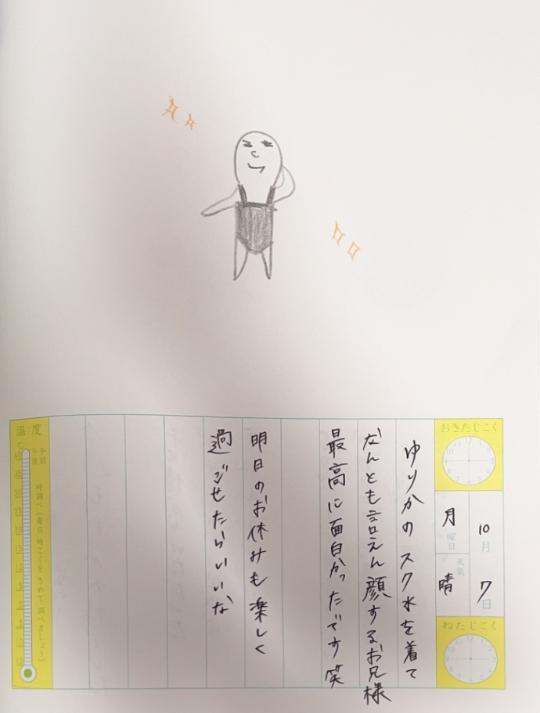 おきたじこく
10月
7日
月曜日
天気
晴
ねたじこく
ゆりかのスク水を着て
なんとも言えん顔するお兄様
最高に面白かったです笑
明日のお休みも楽しく
過ごせたらいいな
温度
午前
午後